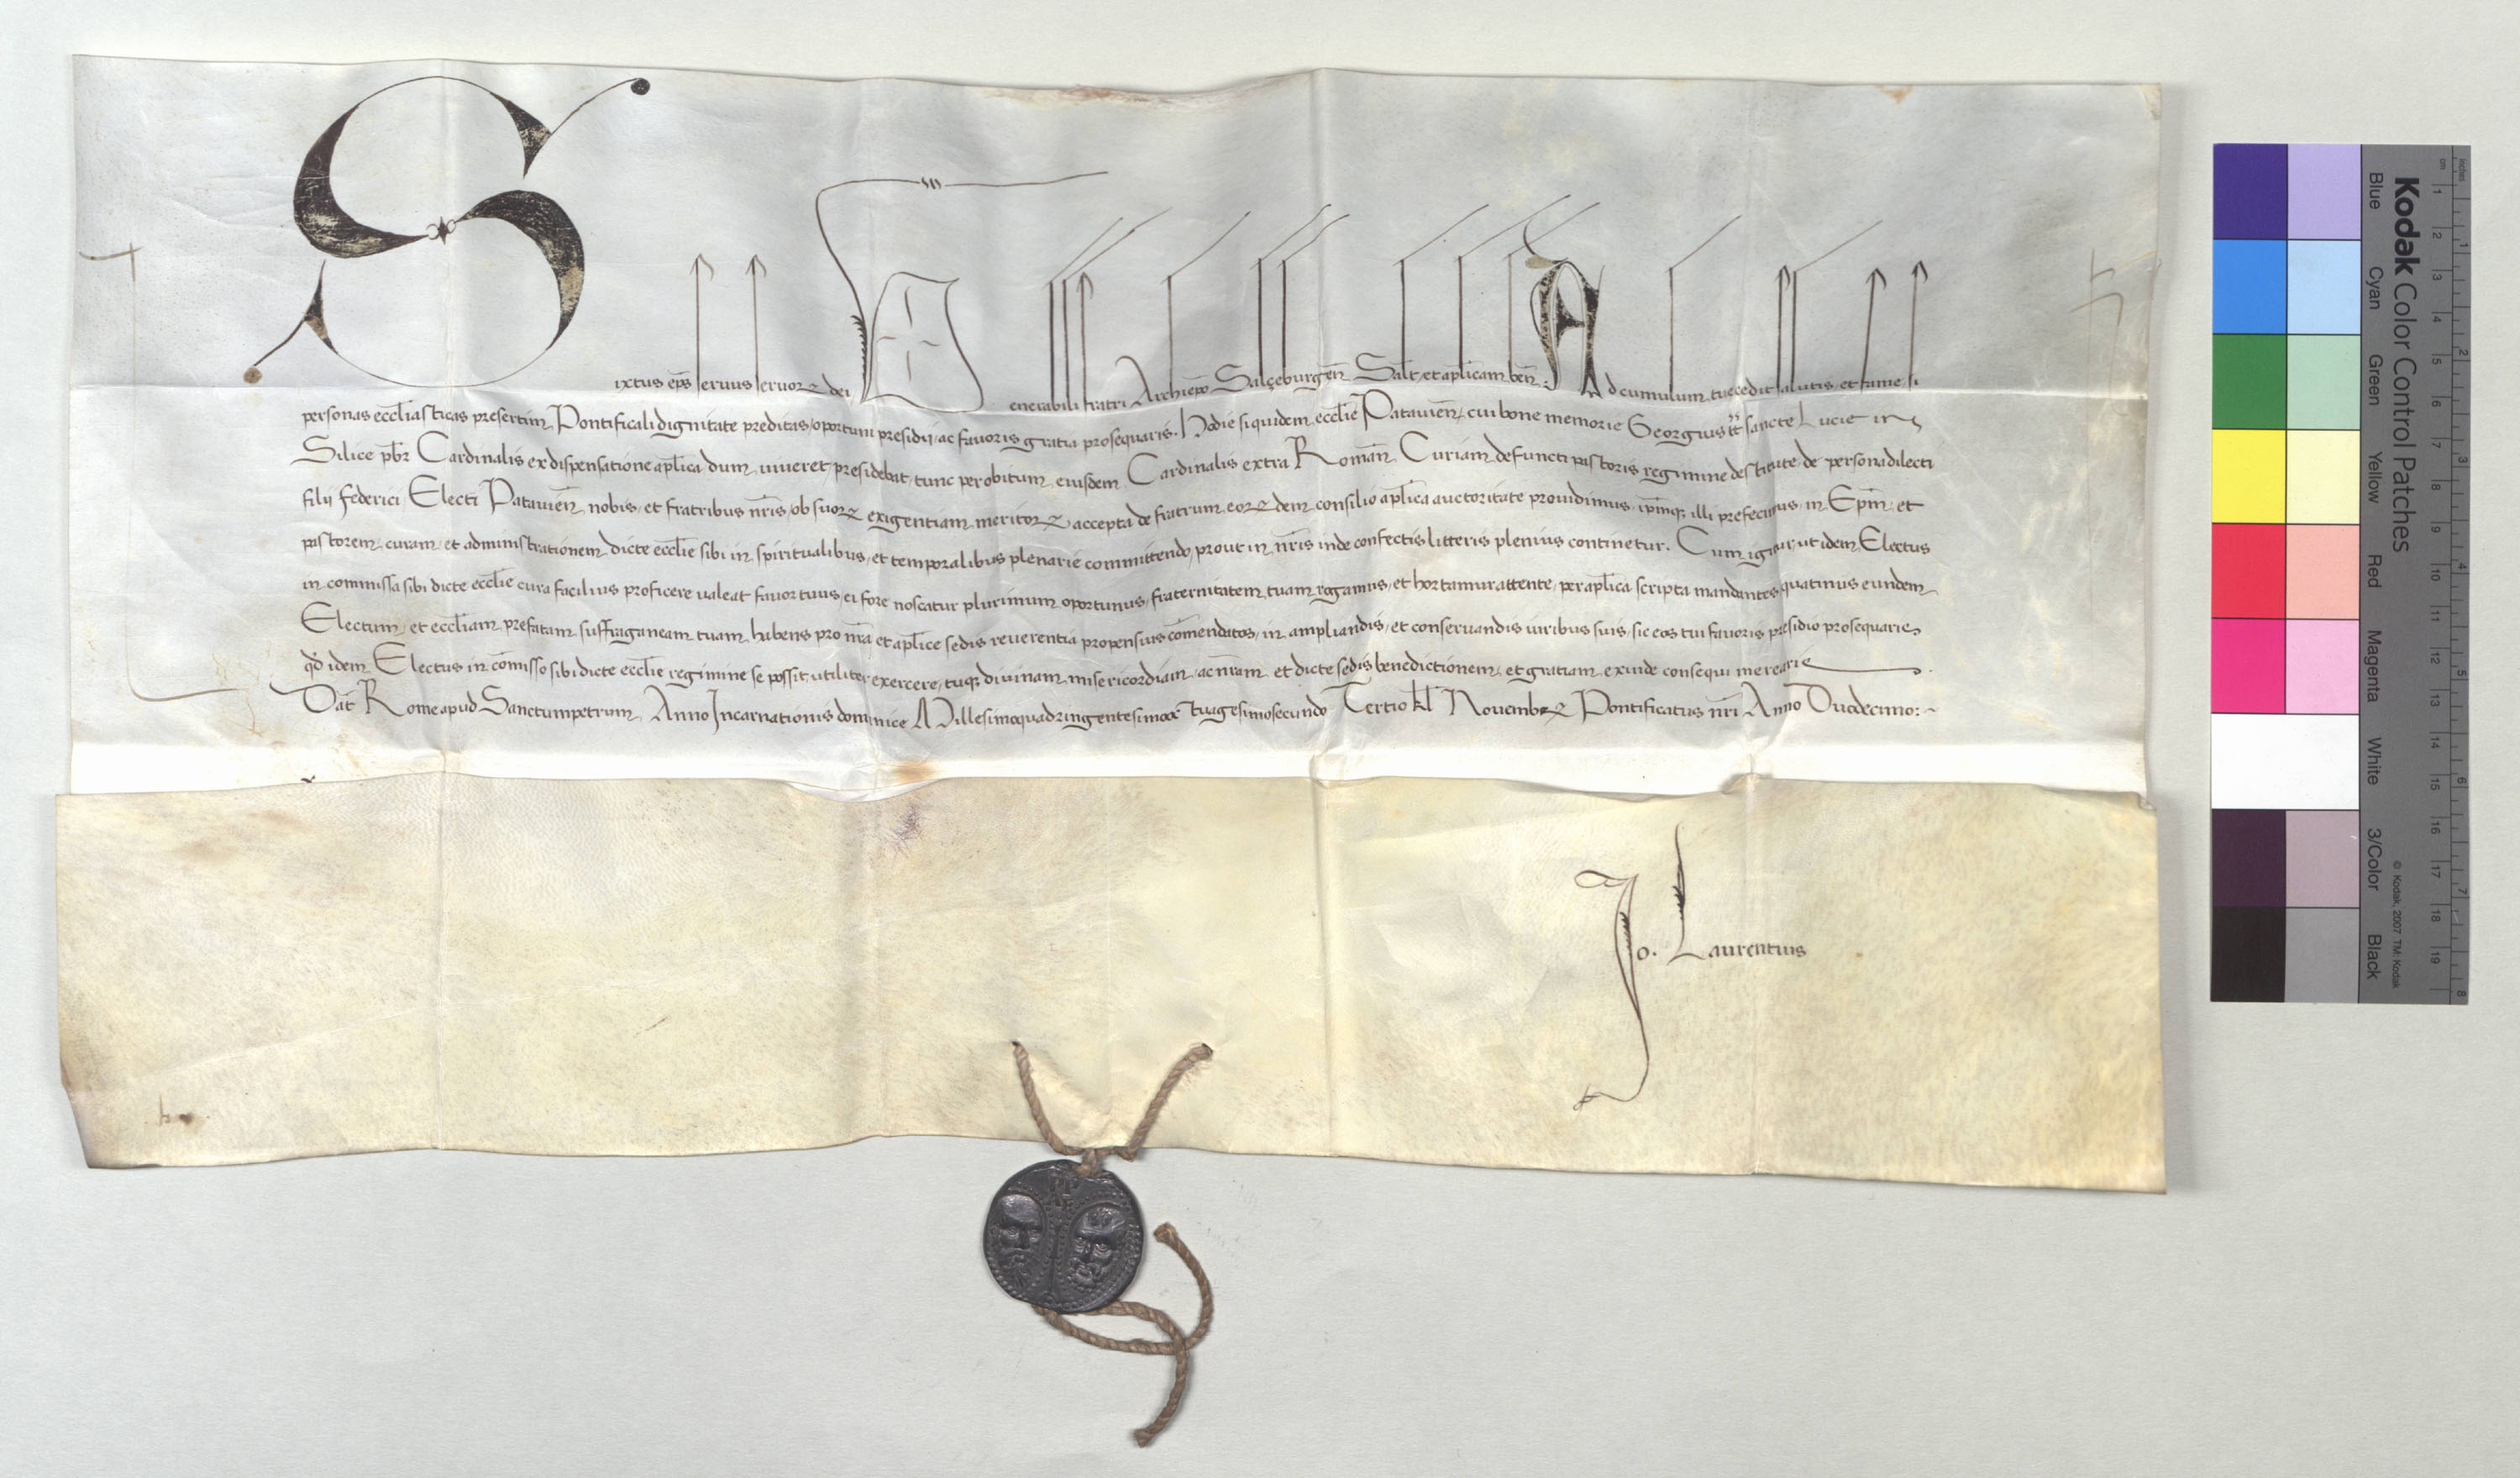 Sixtus ep̄s servus servoꝝ dei Venerabili fratri Archiep̄o Salçeburgen̄ Salt̄ et apl̄icam ben̄. Ad cumulum tue cedit salutis, et fame si
personas eccl̄iasticas presertim Pontificali dignitate preditas, oportuni presidii, ac favoris gratia prosequaris. Hodie siquidem eccl̄ie Patavien̄, cui bone memorie Georgius tt̄ sancte Lucie in
Silice pb̄r Cardinalis ex dispensatione apl̄ica dum viveret, presidebat, tunc per obitum eiusdem Cardinalis extra Roman̄ Curiam defuncti pastoris regimine destitute, de persona dilecti
filii Federici Electi Patavien̄ nobis, et fratribus nr̄is, ob suoꝝ exigentiam meritoꝝ accepta de fratrum eoꝝdem consilio apl̄ica auctoritate providimus, ip̄mqꝫ illi prefecimus in Ep̄m, et
pastorem, curam, et administrationem dicte eccl̄ie sibi in spiritualibus, et temporalibus plenarie committendo, prout in nr̄is inde confectis litteris plenius continetur. Cum igitur, ut idem Electus
in commissa sibi dicte eccl̄ie cura facilius proficere valeat favor tuus, ei fore noscatur plurimum oportunus, fraternitatem tuam rogamus, et hortamur attente, per apl̄ica scripta mandantes quatinus eundem
Electum, et eccl̄iam prefatam suffraganeam tuam habens pro nr̄a et apl̄ice sedis reverentia propensius com̄endatos, in ampliandis, et conservandis iuribus suis, sic eos tui favoris presidio prosequaris
qd̄ idem Electus in com̄isso sibi dicte eccl̄ie regimine se possit utiliter exercere, tuqꝫ divinam misericordiam, ac nr̄am et dicte sedis benedictionem, et gratiam exinde consequi merearis.
Dat̄ Rome apud Sanctumpetrum, Anno Incarnationis dominice Millesimoquadringentesimooctuagesimosecundo Tertio kl̄ Novembꝝ Pontificatus nr̄i Anno Duodecimo:
Jo. Laurentius
Kodak Color Control Patches
Blue Cyan Green Yellow Red Magenta White 3/Color Black
© Kodak, 2007 TM: Kodak
inches 1 2 3 4 5 6 7 8
cm 1 2 3 4 5 6 7 8 9 10 11 12 13 14 15 16 17 18 19